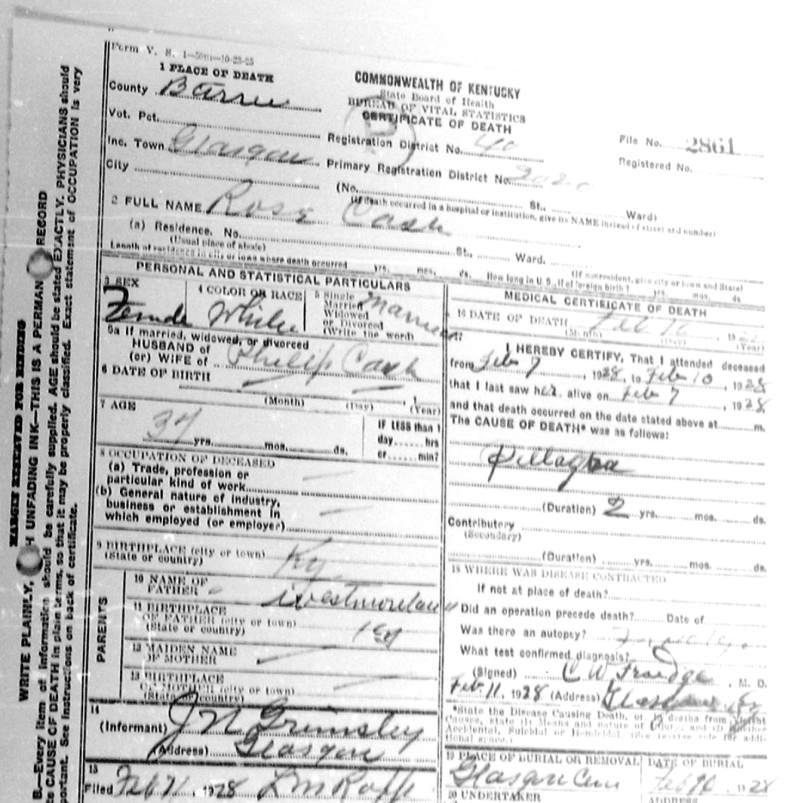 Form V. S. 1—50m—10-23-25
1 PLACE OF DEATH
County Barren
Vot. Pct.
Inc. Town Glasgow
City
COMMONWEALTH OF KENTUCKY
State Board of Health
BUREAU OF VITAL STATISTICS
CERTIFICATE OF DEATH
Registration District No. 40
Primary Registration District No.
File No. 2861
Registered No.
(No. St., Ward)
(If death occurred in a hospital or institution, give its NAME instead of street and number)
2 FULL NAME Rose Cash
(a) Residence. No. St., Ward.
(Usual place of abode) (If nonresident, give city or town and State)
Length of residence in city or town where death occurred yrs. mos. ds. How long in U. S., if of foreign birth? yrs. mos. ds.
PERSONAL AND STATISTICAL PARTICULARS
3 SEX
Female
4 COLOR OR RACE
White
5 Single
Married
Widowed
or Divorced
(Write the word)
Married
5a If married, widowed, or divorced
HUSBAND of
(or) WIFE of Philip Cash
6 DATE OF BIRTH
(Month) (Day) (Year)
7 AGE
yrs. mos. ds.
IF LESS than 1
day ...... hrs
or ...... min?
8 OCCUPATION OF DECEASED
(a) Trade, profession or
particular kind of work
(b) General nature of industry,
business or establishment in
which employed (or employer)
9 BIRTHPLACE (city or town)
(State or country) Ky
PARENTS
10 NAME OF
FATHER Westmoreland
11 BIRTHPLACE
OF FATHER (city or town)
(State or country) Ky
12 MAIDEN NAME
OF MOTHER
13 BIRTHPLACE
OF MOTHER (city or town)
(State or country)
14
(Informant) J N Grimsley
(Address) Glasgow
15
Filed Feb 1928
MEDICAL CERTIFICATE OF DEATH
16 DATE OF DEATH Feb
(Month) (Day) (Year)
I HEREBY CERTIFY, That I attended deceased
from Feb 7, 1928, to Feb 10, 1928
that I last saw her alive on Feb 7, 1928
and that death occurred on the date stated above at m.
The CAUSE OF DEATH* was as follows:
Pellagra
(Duration) 2 yrs. mos. ds.
Contributory
(Secondary)
(Duration) yrs. mos. ds.
18 WHERE WAS DISEASE CONTRACTED
If not at place of death?
Did an operation precede death? Date of
Was there an autopsy?
What test confirmed diagnosis?
(Signed) C W Froedge, M. D.
Feb 11, 1928 (Address) Glasgow Ky
*State the Disease Causing Death, or in deaths from Violent
Causes, state (1) Means and nature of Injury; and (2) whether
Accidental, Suicidal or Homicidal
19 PLACE OF BURIAL OR REMOVAL
Glasgow Cem
DATE OF BURIAL
Feb 1928
20 UNDERTAKER
ADDRESS
MARGIN RESERVED FOR BINDING
WRITE PLAINLY, H UNFADING INK—THIS IS A PERMAN RECORD
B.—Every item of information should be carefully supplied. AGE should be stated EXACTLY. PHYSICIANS should
CAUSE OF DEATH in plain terms, so that it may be properly classified. Exact statement of OCCUPATION is very
portant. See instructions on back of certificate.